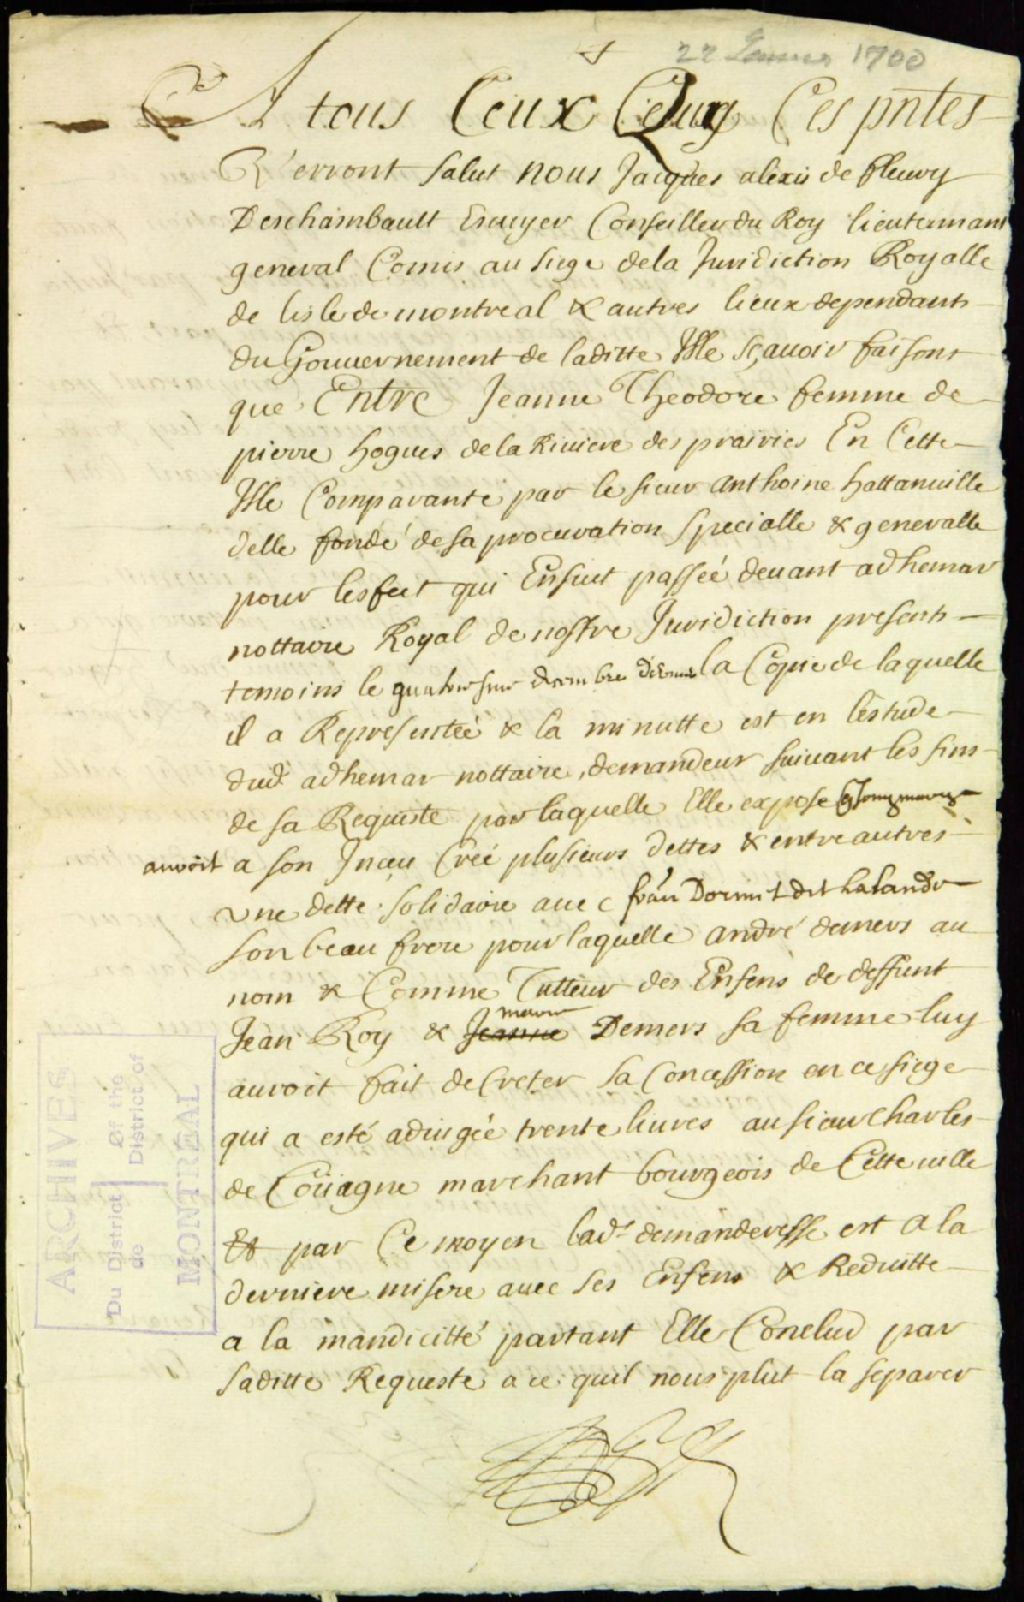 22 Janvier 1700
A tous Ceux Quy Ces pntes
Verront salut nous Jacques alexis de fleury
Deschambault Escuyer Conseiller du Roy lieutennant
general Comis au siege dela Jurisdiction Royalle
de lisle de montreal & autres lieux dependants
du Gouvernement de laditte Isle sçauoir faisons
que Entre Jeanne Theodore femme de
pierre hogues de la Riuiere des prairies En Cette
Isle Comparante par le sieur anthoine hattanuille
delle fondé de sa procuration specialle & generalle
pour lesfect qui Ensuit passéé deuant adhemar
nottaire Royal de nostre Jurisdiction presents
temoins le quatorsme decembre dernier la Copie de laquelle
il a Representéé & la minutte est en lestude
dud. adhemar nottaire, demandeur suiuant les fins
de sa Requeste par laquelle Elle expose q Son mary
auroit a son Inceu Créé plusieurs dettes & entre autres
une dette solidaire auec fran Dormet dit Lalande
son beau frere pour laquelle andré demers au
nom & Comme Tutteur des Enfens de deffunt
Jean Roy & Jeanne Demers sa femme luy
auroit fait deCreter sa Concession en ce siege
qui a esté adiugée trente liures au sieur Charles
de Coüagne marchant bourgeois de Cette uille
Et par Ce moyen lad. demanderesse est a la
derniere misere auec ses Enfens & Reduitte
a la mandicitté partant Elle Conclud par
saditte Requeste a ce quil nous plut la separer
ARCHIVES
Du District | Of the
de | District of
MONTREAL